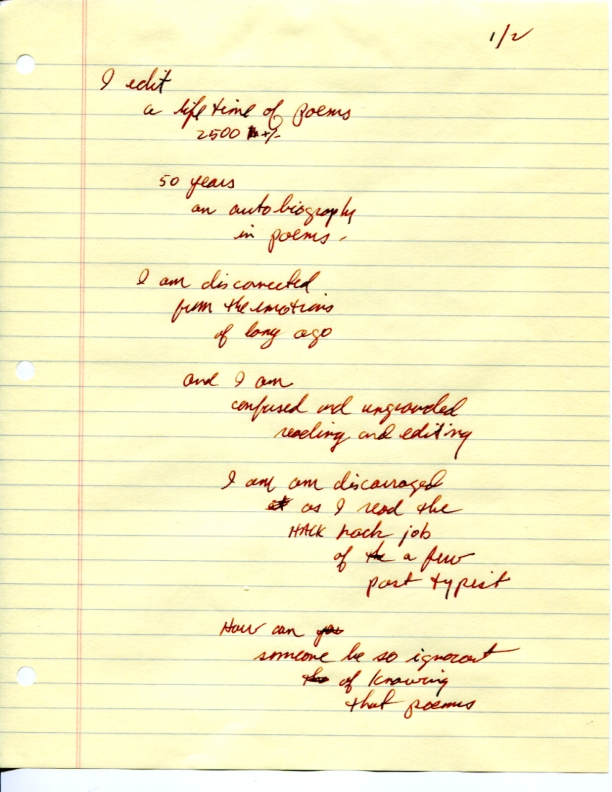 1/2
I edit
a life time of poems
2500 +/-
50 years
an autobiography
in poems.
I am disconnected
from the emotions
of long ago
and I am
confused and ungrounded
reading and editing
I am am discouraged
as I read the
HACK hack job
of a few
past typist
How can
someone be so ignorant
of knowing
that poems